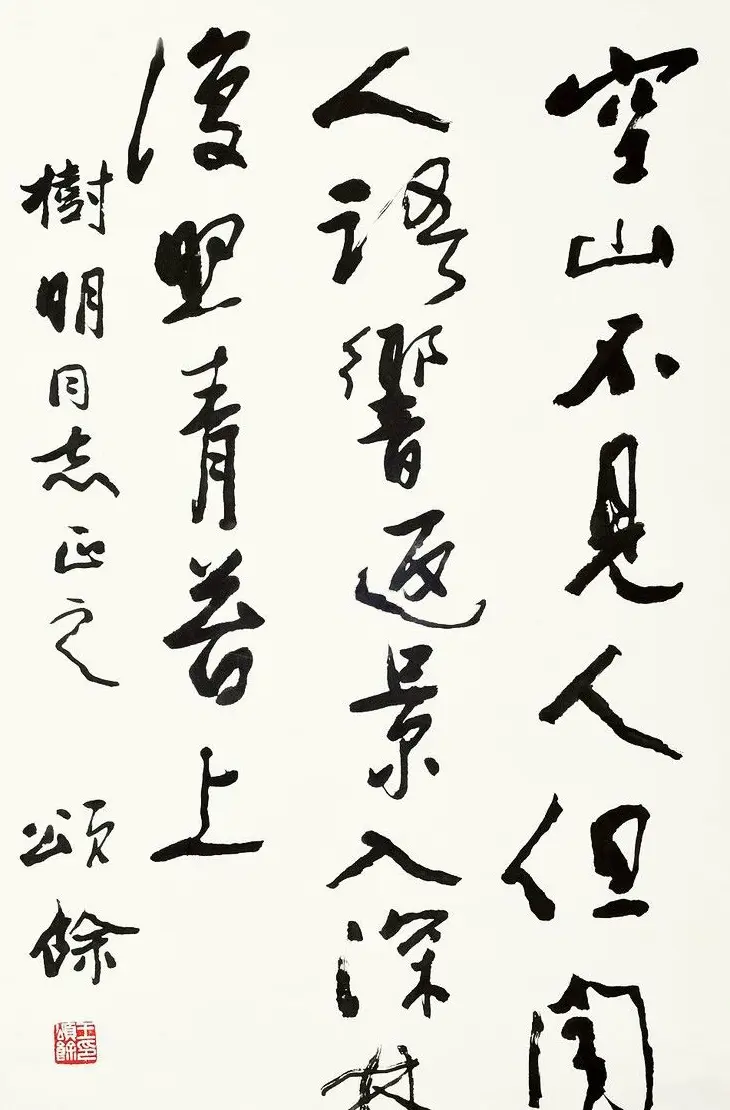 空山不見人但聞
人語響返景入深林
復照青苔上
樹明同志正之 頌餘
王印頌餘